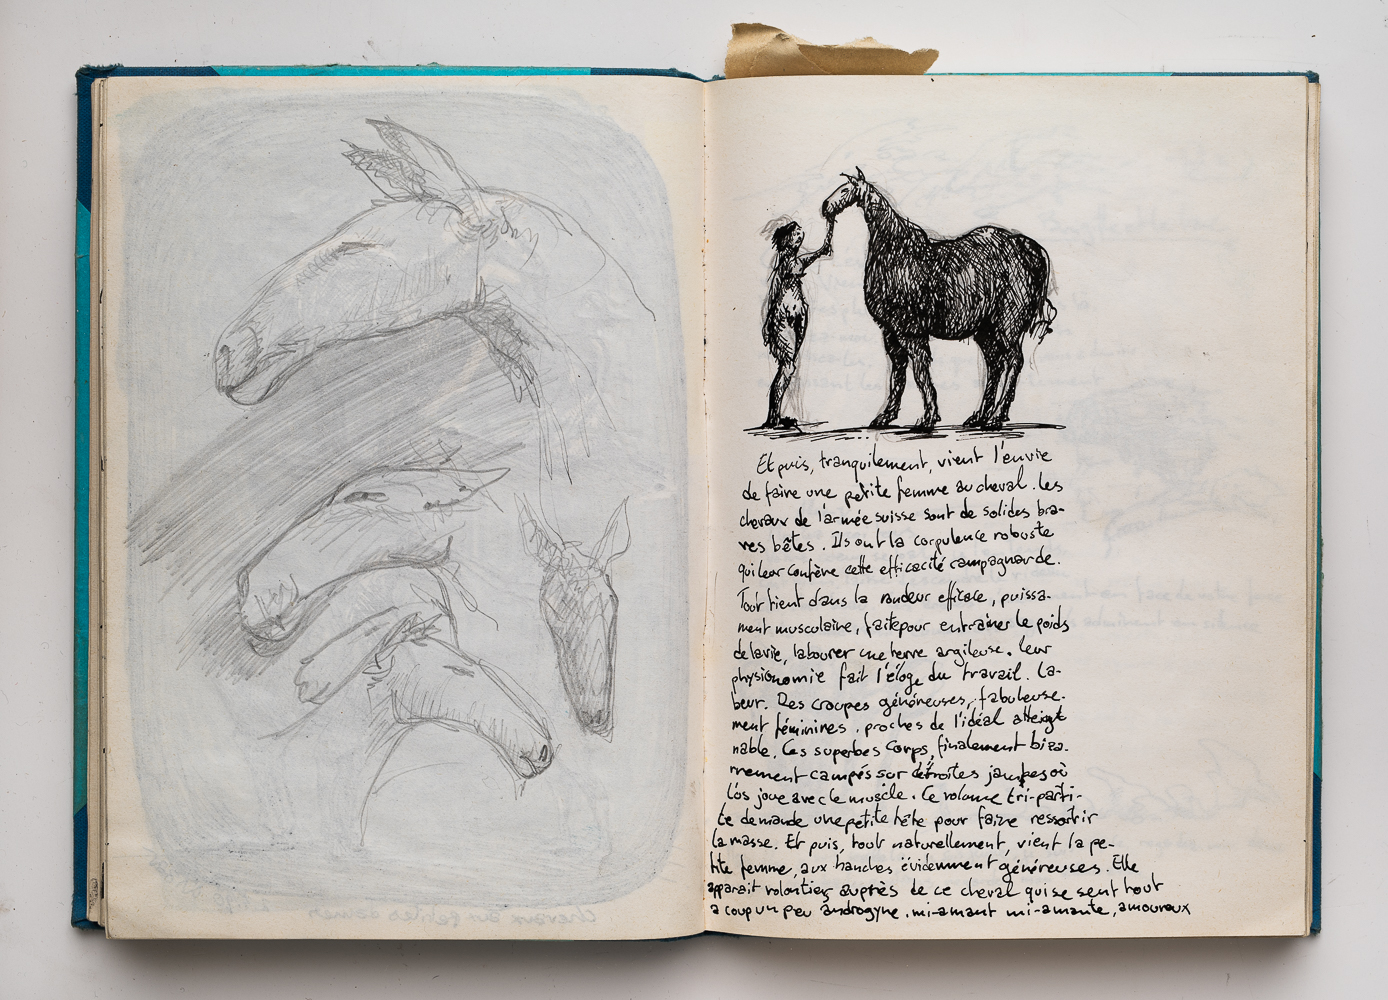 Et puis, tranquilement, vient l'envie
de faire une petite femme au cheval. Les
chevaux de l'armée suisse sont de solides bra-
ves bêtes. Ils ont la corpulence robuste
qui leur confère cette efficacité campagnarde.
Tout tient dans la rondeur efficace, puissa-
ment musculaire, faite pour entrainer le poids
de la vie, labourer une terre argileuse. Leur
physionomie fait l'éloge du travail. La-
beur. Des croupes généreuses, fabuleuse-
ment féminines, proches de l'idéal atteigt
nable. Ces superbes corps, finalement biza-
rrement campés sur détroites jambes où
l'os joue avec le muscle. Ce volume tri-parti-
te demande une petite tête pour faire ressortir
la masse. Et puis, tout naturellement, vient la pe-
tite femme, aux hanches évidemment généreuses. Elle
apparait volontier auprès de ce cheval qui se sent tout
a coup un peu androgyne, mi-amant mi-amante, amoureux